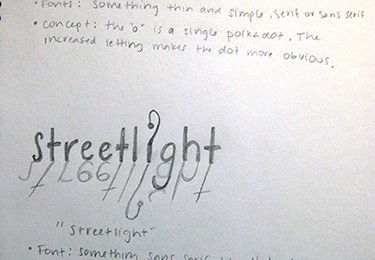 • Fonts: something thin and simple, serif or sans serif
• Concept: the "o" is a single polkadot. The
increased letting makes the dot more obvious.
streetlight
"streetlight"
• Font: something sans serif